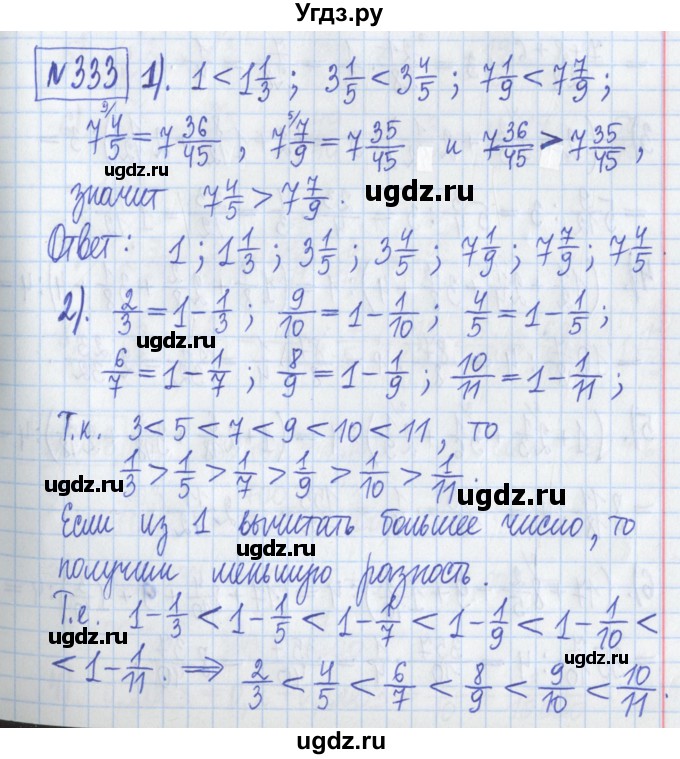 Угдз.ру
№333 1). 1 < 1 1/3 ; 3 1/5 < 3 4/5 ; 7 1/9 < 7 7/9 ;
7 4/5 ⁹⁾ = 7 36/45 , 7 7/9 ⁵⁾ = 7 35/45 и 7 36/45 > 7 35/45 ,
ugdz.ru ugdz.ru ugdz.ru
значит 7 4/5 > 7 7/9 .
ugdz.ru
Ответ: 1 ; 1 1/3 ; 3 1/5 ; 3 4/5 ; 7 1/9 ; 7 7/9 ; 7 4/5 .
ugdz.ru ugdz.ru
2). 2/3 = 1 - 1/3 ; 9/10 = 1 - 1/10 ; 4/5 = 1 - 1/5 ;
ugdz.ru
6/7 = 1 - 1/7 ; 8/9 = 1 - 1/9 ; 10/11 = 1 - 1/11 ;
ugdz.ru ugdz.ru
Т.к. 3 < 5 < 7 < 9 < 10 < 11, то
ugdz.ru
1/3 > 1/5 > 1/7 > 1/9 > 1/10 > 1/11 .
ugdz.ru ugdz.ru
Если из 1 вычитать большее число, то
ugdz.ru
получим меньшую разность.
ugdz.ru
Т.е. 1 - 1/3 < 1 - 1/5 < 1 - 1/7 < 1 - 1/9 < 1 - 1/10 <
ugdz.ru ugdz.ru
< 1 - 1/11 . ⇒ 2/3 < 4/5 < 6/7 < 8/9 < 9/10 < 10/11 .
ugdz.ru ugdz.ru
ugdz.ru